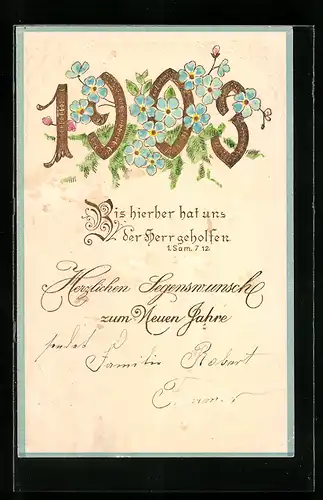 1903
Bis hierher hat uns
der Herr geholfen.
1. Sam. 7 12.
Herzlichen Segenswunsch
zum Neuen Jahre
sendet Familie Robert